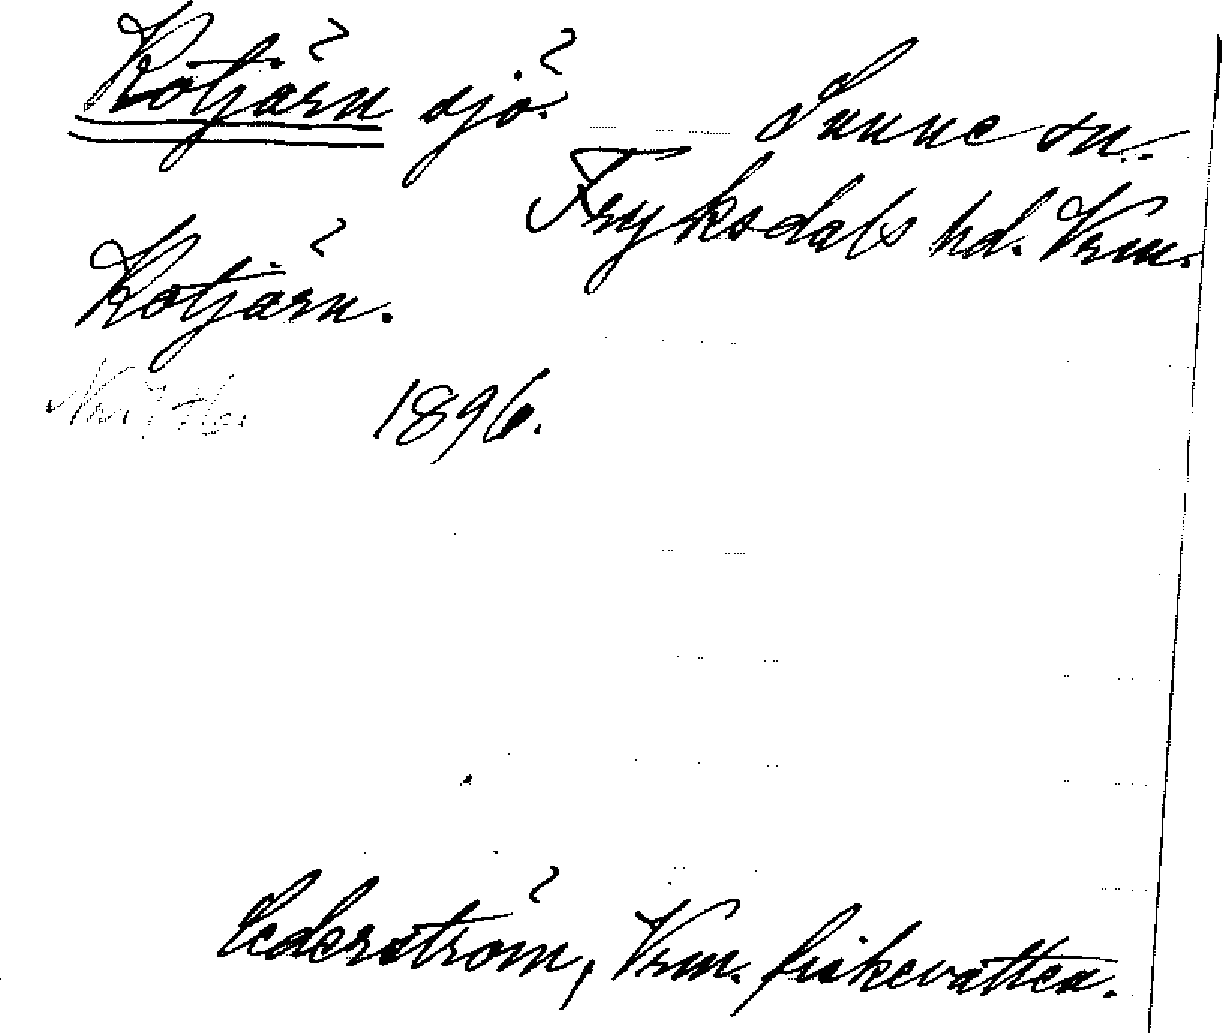 Kotjärn sjö.
Sunne sn.
Fryksdals hd. Vrm.
Kotjärn.
1896.
Cederström, Vrm. fiskevatten.